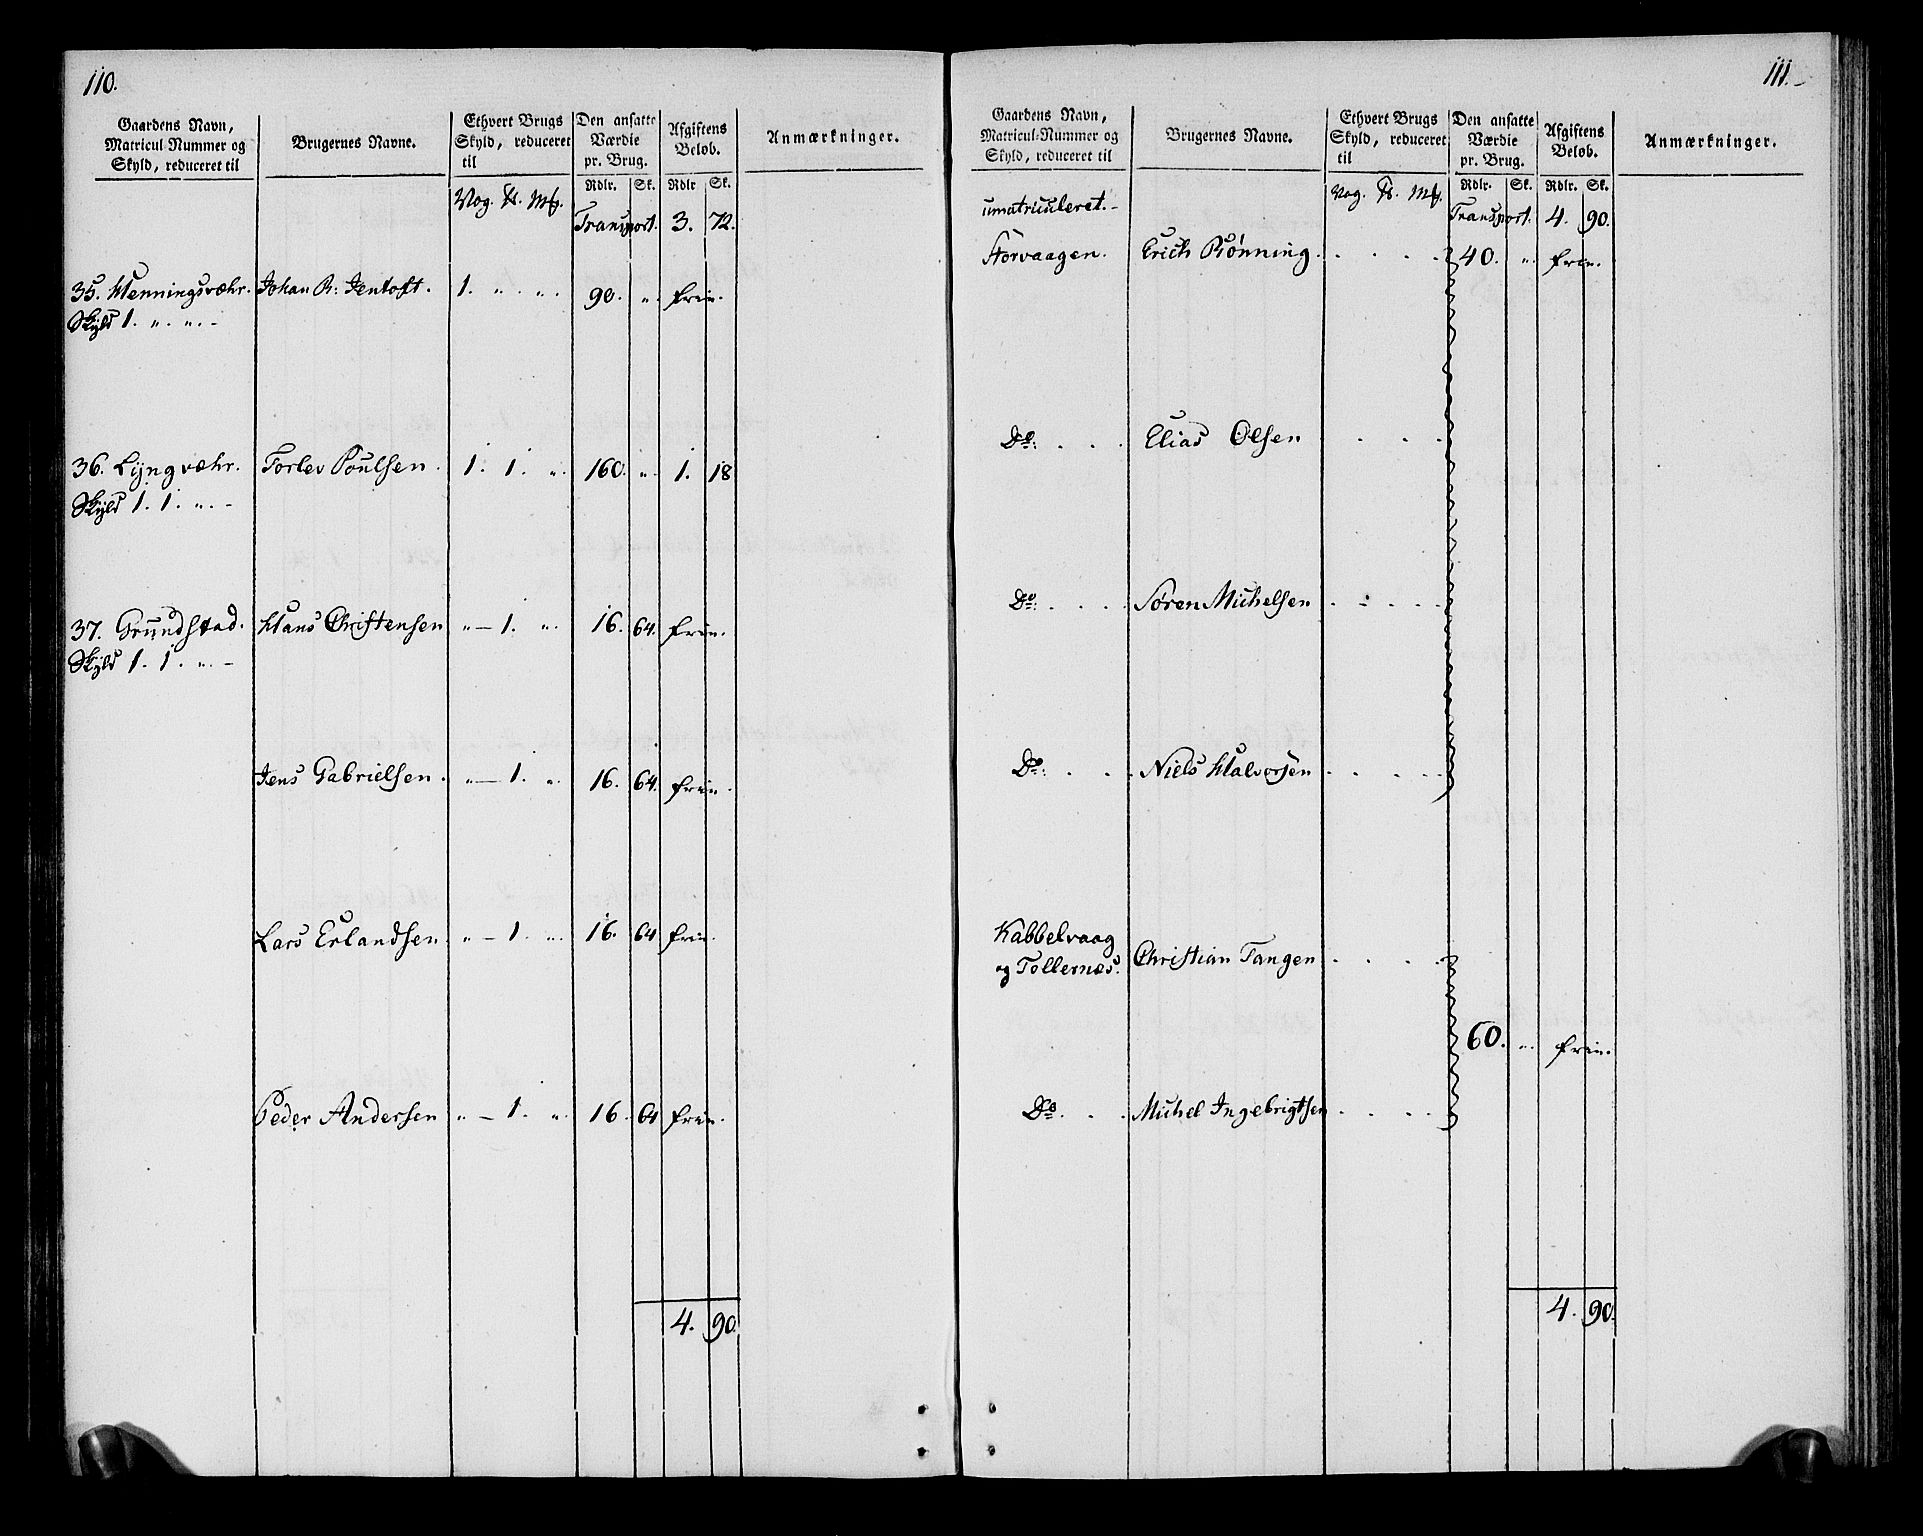 110.
Gaardens Navn,
Matricul-Nummer og
Skyld, reduceret til
Brugernes Navne.
Ethvert Brugs
Skyld, reduceret
til
Den ansatte
Værdie
pr. Brug.
Afgiftens
Beløb.
Anmærkninger.
Rdlr. Sk. Rdlr Sk.
Vog. Mk.
Transport. 3. 72.
35. Henningsvæhr. Johan R. Jentoft. 1. „ „ 90. „ frie.
Skyld 1. „. „. –
36. Lyngvæhr. Torlev Poulsen. 1. 1. „ 160. „ 1. 18
Skyld 1. 1. „. –
37. Grundstad. Hans Christensen „ – 1. „ 16. 64. frie.
Skyld 1. 1. „. –
Jens Gabrielsen. „ – 1. „ 16. 64. frie.
Lars Erlandsen „ – 1. „ 16. 64 frie.
Peder Andersen „ – 1. „ 16. 64 frie.
4. 90.
111.
Gaardens Navn,
Matricul-Nummer og
Skyld, reduceret til
Brugernes Navne.
Ethvert Brugs
Skyld, reduceret
til
Den ansatte
Værdie
pr. Brug.
Afgiftens
Beløb.
Anmærkninger.
Rdlr. Sk. Rdlr. Sk.
Vog. Mk.
umatriculeret. – Transport. 4. 90.
Storvaagen. Erich Rønning. . . . . 40. „ frie.
Do: . . . Elias Olsen . . . .
Do: . . . . Søren Michelsen . . . . .
Do: . . . Niels Halvorsen . . . . .
Kabbelvaag
og Tollernæs. Christian Tangen . . . . .
60. „ frie.
Do. . . . Michel Ingebrigtsen . . . . .
4. 90.